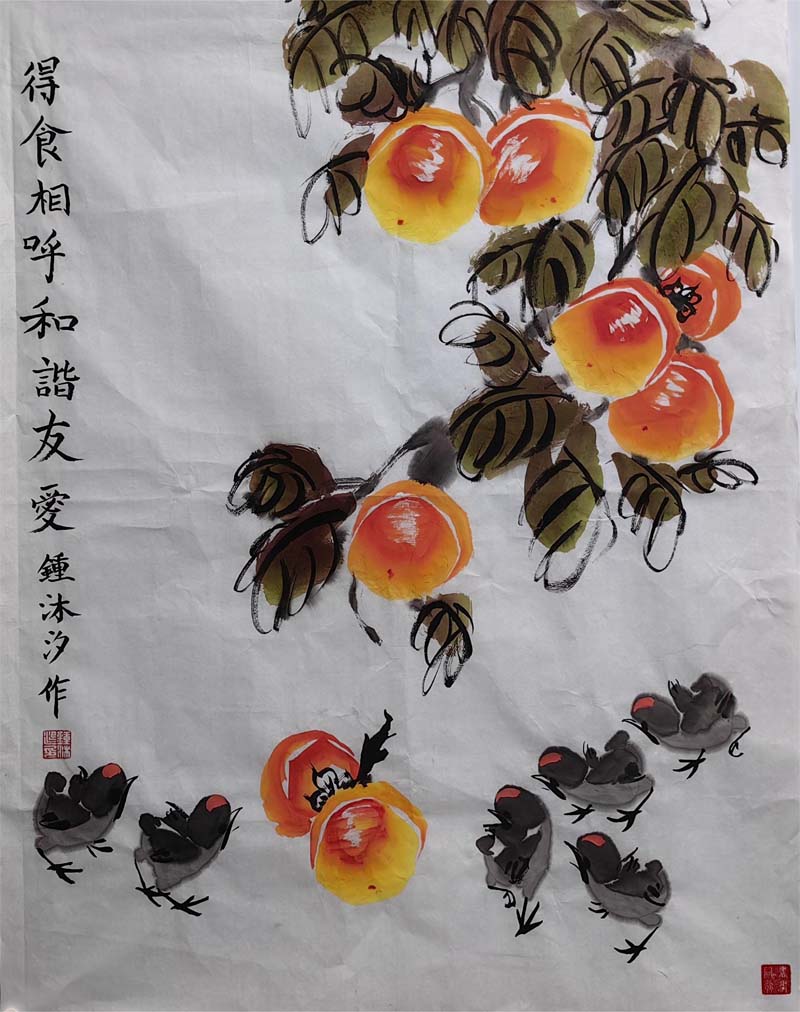 得食相呼和諧友愛鍾沐汐作